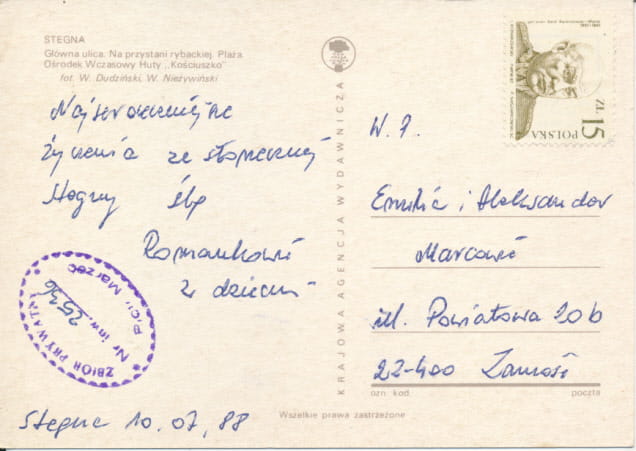 STEGNA
Główna ulica. Na przystani rybackiej. Plaża.
Ośrodek Wczasowy Huty „Kościuszko”
fot. W. Dudziński, W. Nieżywiński
Najserdeczniejsze
życzenia ze słonecznej
Stegny ślą
Romankowie
z dziećmi
ZBIÓR PRYWATNY
Nr inw. 2536
Marzec
Stegna 10.07,88
KRAJOWA AGENCJA WYDAWNICZA
ZŁ 15
POLSKA
W. P.
Emilia i Aleksander
Marcowie
ul. Powiatowa 20b
22-400 Zamość
ozn kod poczta
Wszelkie prawa zastrzeżone